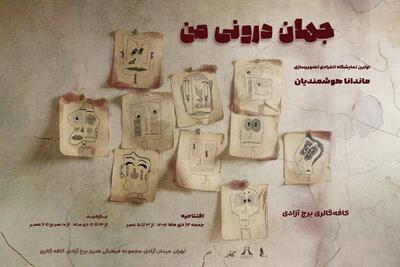 جهان درونی من
اولین نمایشگاه انفرادی تصویرسازی
ماندانا هوشمندیان
کافه‌گالری برج آزادی
افتتاحیه
جمعه ۱۴ دی ماه ۱۴۰۳ از ۳ تا ۸ عصر
بازدید
از ۱۴ تا ۱۸ دی ماه، ۱۰ صبح تا ۶ عصر
تهران، میدان آزادی، مجموعه فرهنگی هنری برج آزادی، کافه گالری